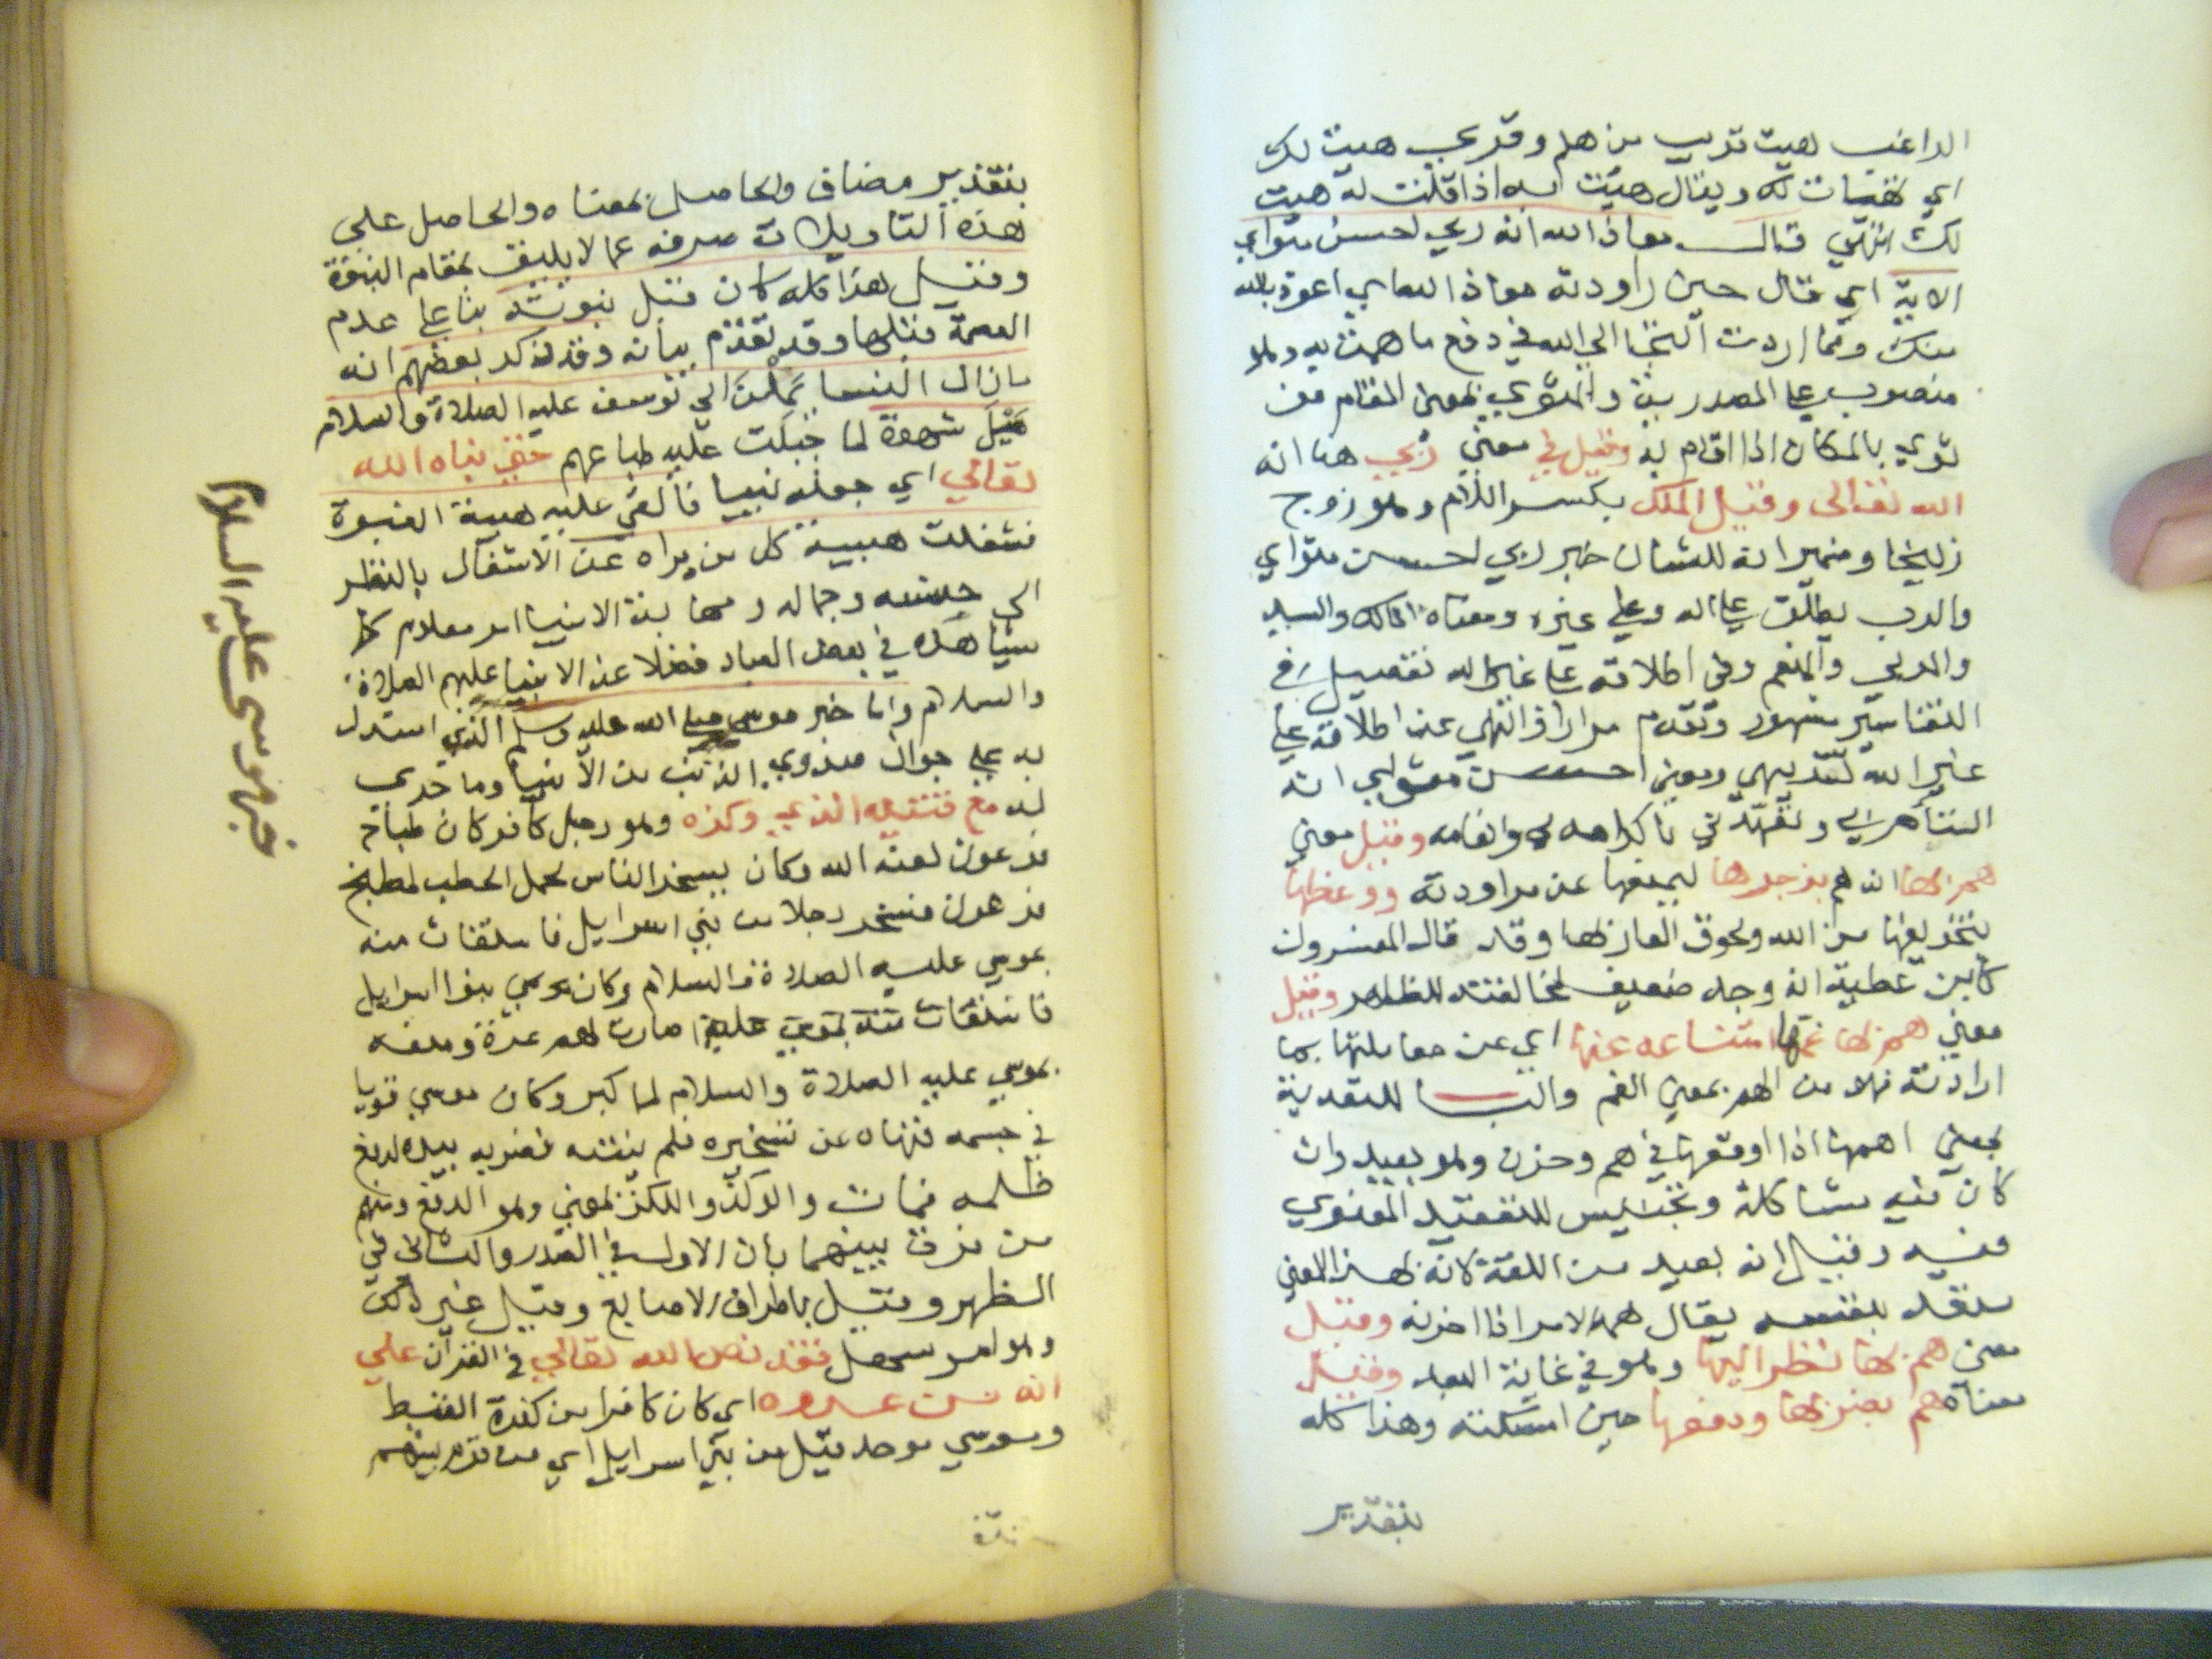 الراغب هيت قريب من هلم وقري هيت لك
اي تهيات لك ويقال هيت به اذا قلت له هيت
لك انتهى قال معاذ الله انه ربي احسن مثواي
الاية اي قال حين راودته معاذ الله اي اعوذ بالله
منك ومما اردت التجا الي الله في دفع ما همت به وهو
منصوب علي المصدرية والمثوي بمعني المقام من
ثوي بالمكان اذا اقام به وقيل في معني ربي هنا انه
الله تعالى وقيل الملك بكسر اللام وهو زوج
زليخا وضمير انه للشان خبر ربي احسن مثواي
والرب يطلق علي الله وعلي غيره ومعناه المالك والسيد
والمربي والمنعم وفي اطلاقه علي غير الله تفصيل في
التفاسير مشهور وتقدم مرارا والنهي عن اطلاقه علي
غير الله تنزيهي ومعني احسن مثواي انه
اشتراني وتعهدني باكرامه لي وانعامه وقيل معني
هم بها انه هم بزجرها ليمنعها عن مراودته ووعظها
بتخويفها من الله ولحوق العار لها وقد قال المفسرون
كابن عطية انه وجه ضعيف لمخالفته للظاهر وقيل
معني هم بها غمها امتناعه عنها اي عن معاملتها بما
ارادته فهو من الهم بمعني الغم والبا للتعدية
بمعني اهمها اذا اوقعها في هم وحزن وهو بعيد وان
كان فيه مشاكلة وتجنيس للتعقيد المعنوي
فيه وقيل انه بعيد من اللغة لانه بهذا المعني
متعد بنفسه يقال همه الامر اذا احزنه وقيل
معني هم بها نظر اليها وهو في غاية البعد وقيل
معناه هم بضربها ودفعها حين امسكته وهذا كله
بتقدير
بتقدير مضاف والحاصل بمعناه والحاصل علي
هذه التاويلات صرفه عما لا يليق بمقام النبوة
وقيل هذا كله كان قبل نبوته بنا علي عدم
العصمة قبلها وقد تقدم بيانه وقد ذكر بعضهم انه
مازال النسا يملن الي يوسف عليه الصلاة والسلام
ميل شهوة لما جبلت عليه طباعهم حتي نباه الله
تعالي اي جعله نبيا فالقي عليه هيبة النبوة
فشغلت هيبته كل من يراه عن الاشتغال بالنظر
الي حسنه وجماله ومهابة الانبيا امر معلوم كما
شاهده في بعض العباد فضلا عن الانبيا عليهم الصلاة
والسلام واما خبر موسي صلي الله عليه وسلم الذي استدل
به علي جواز صدور الذنب من الانبيا وما جري
له مع قتيله الذي وكزه وهو رجل كافر كان طباخ
فرعون لعنه الله وكان يسخر الناس لحمل الحطب لمطبخ
فرعون فسخر رجلا من بني اسرايل فاستغاث منه
بموسي عليه الصلاة والسلام وكان موسي بنو اسرايل
صارت لهم عزة ومنعة
بموسي عليه الصلاة والسلام لما كبر وكان موسي قويا
في جسمه فنهاه عن تسخيره فلم ينته فضربه بيده لدفع
ظلمه فمات والوكز واللكز بمعني وهو الدفع ومنهم
من فرق بينهما بان الاول في الصدر والثاني في
الظهر وقيل باطراف الاصابع وقيل غير ذلك
وهو امر سهل فقد نص الله تعالي في القران علي
انه من عدوه اي كان كافرا من كفرة القبط
وموسي موحد قيل من بني اسرايل اي من
خبر موسى عليه السلام